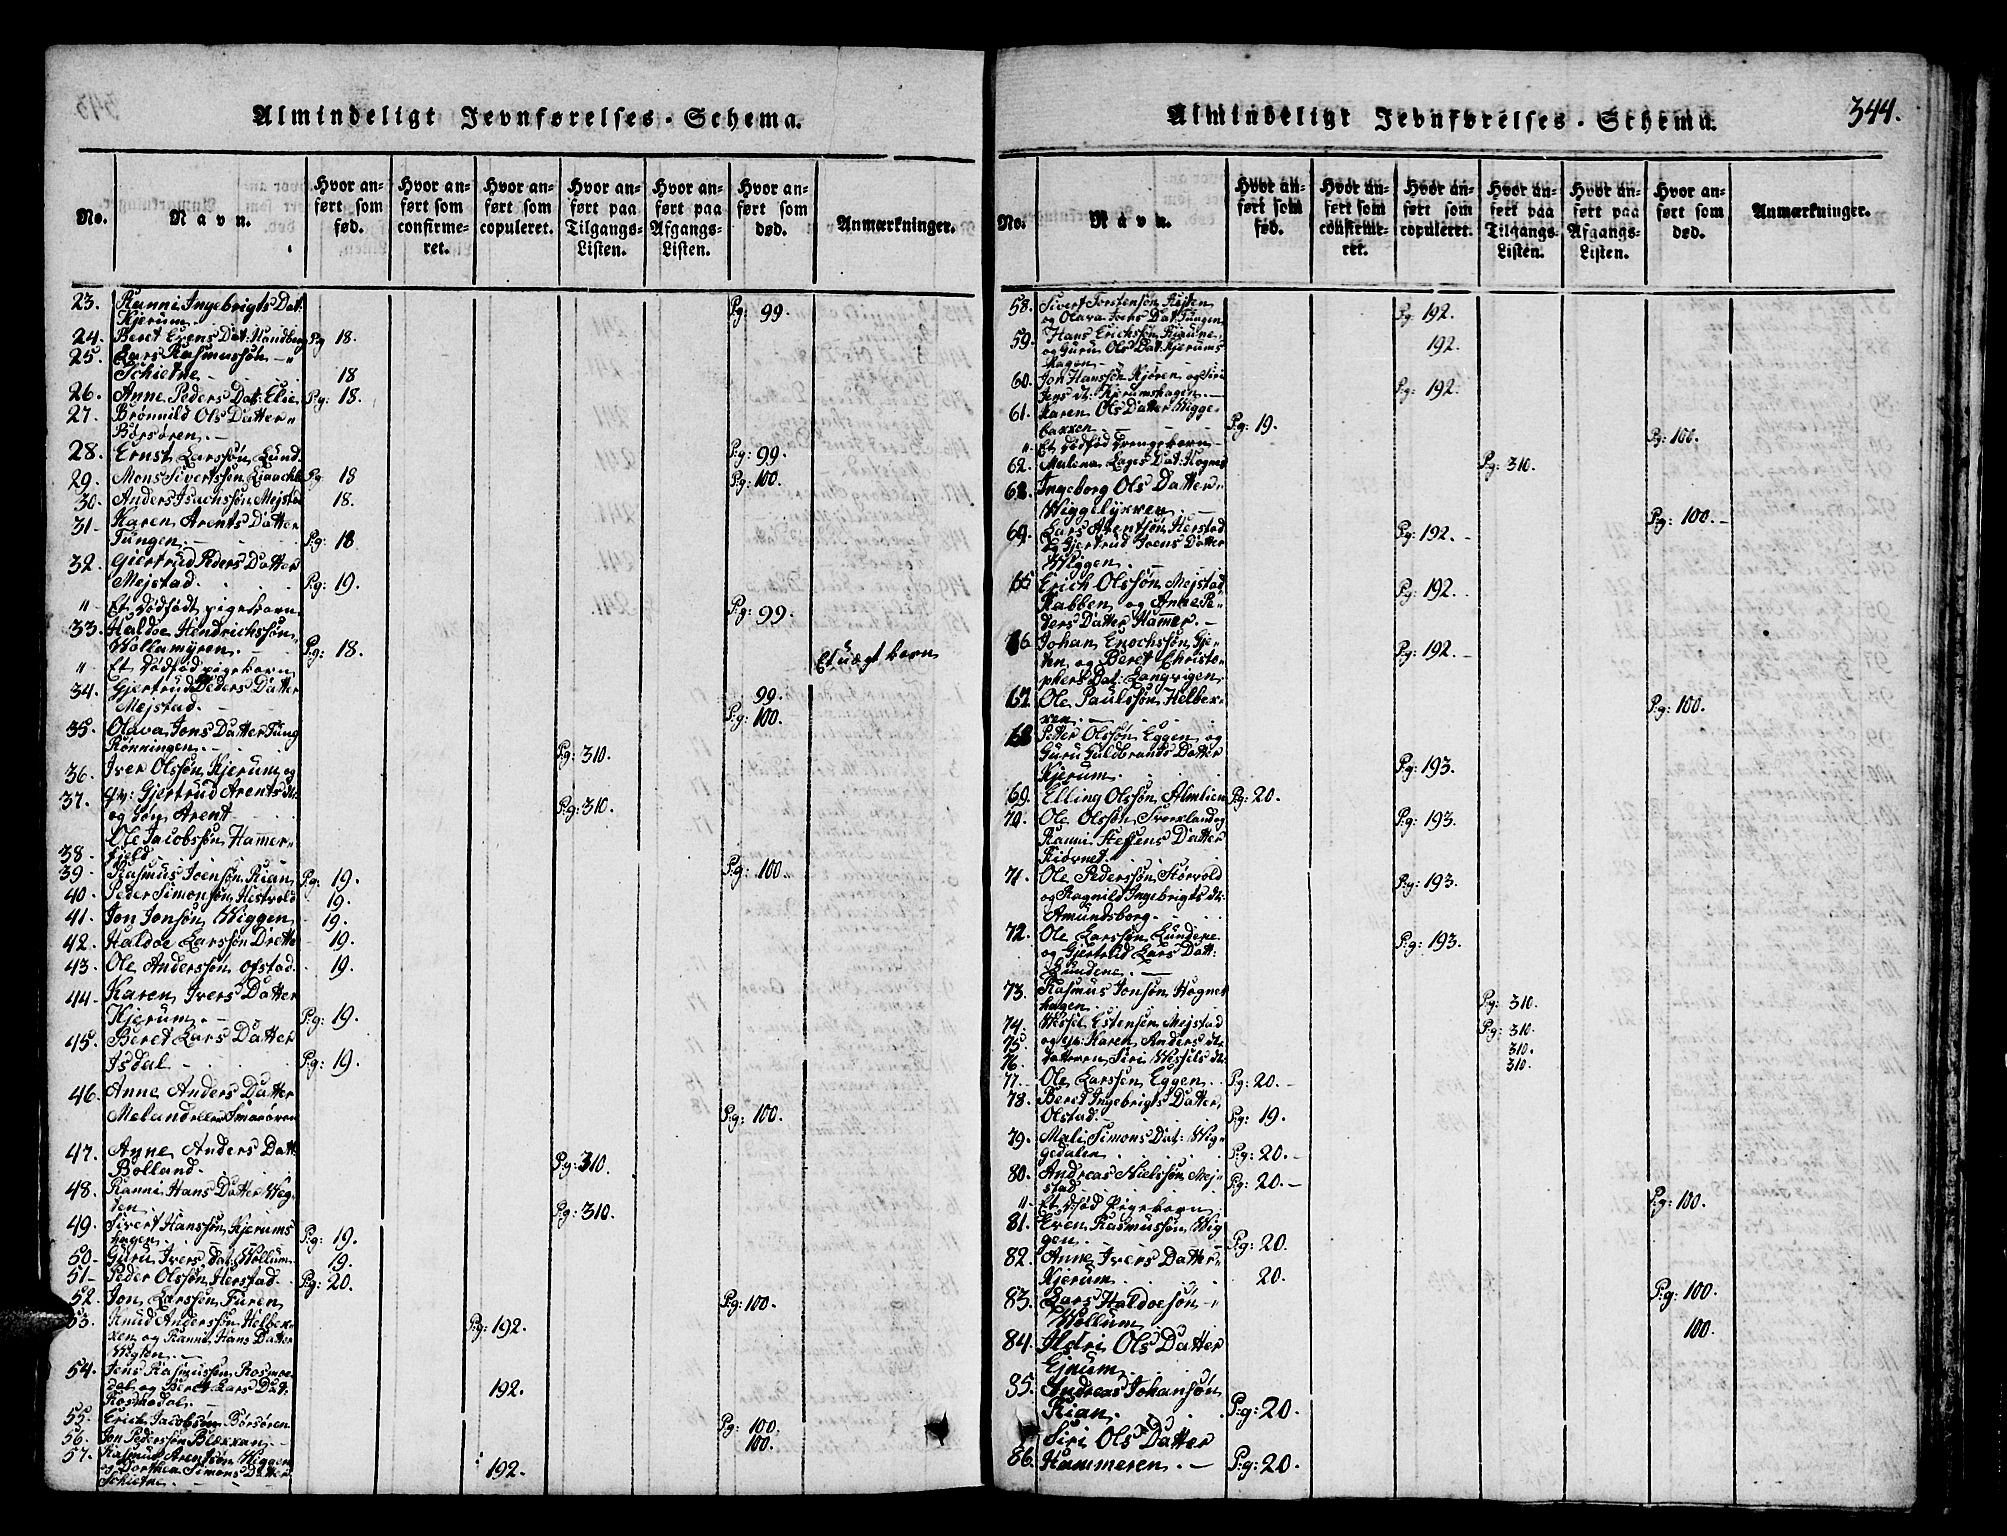 Almindeligt Jevnførelses-Schema.
No.
Navn.
Hvor anført som fød.
Hvor anført som confirmeret.
Hvor anført som copuleret.
Hvor anført paa Tilgangs-Listen.
Hvor anført paa Afgangs-Listen.
Hvor anført som død.
Anmærkninger.
23. Ranni Ingebrigts Dat. Pg: 99.
Kjerum
24. Beret Evens Dat: Pg 18.
25. Lars Rasmussøn
Schietne 18
26. Anne Peders Dat: Elie Pg: 18.
27. Brønnild Ols Datter
Børsøren.
28. Ernst Larssøn Lund. Pg: 99.
29. Mons Sivertssøn Pg 18 Pg: 100.
30. Anders Isachssøn Mejstad 18.
31. Karen Arents Datter
Tungen. Pg: 18
32. Giertrud Peders Datter
Mejstad. Pg: 19.
" Et dødfødt pigebarn Pg: 99.
33. Haldoe Hendrickssøn
Wollamyren. Pg: 18.
" Et dødfød pigebarn Et uægt barn
34. Gjertrud Peders Datter 99.
Mejstad. Pg: 100.
35. Olava Jons Datter Tung
Rønningen. Pg: 310.
36. Iver Olssøn Kjerum og
37. Gjertrud Arents Dt. Pg: 310.
og søn Arent
Ole Jacobssøn Hamer-
38. fjeld Pg: 100.
39. Rasmus Joensøn Rian Pg: 19.
40. Peder Simonsøn Hestvold 19.
41. Jon Jonsøn Wiggen 19.
42. Haldoe Larssøn 19.
43. Ole Anderssøn Ofstad. 19.
44. Karen Ivers Datter
Kjerum. Pg: 19.
45. Beret Lars Datter
Isdal Pg: 19.
46. Anne Anders Datter
Meland eller Smarøren Pg: 100.
47. Anne Anders Datt
Bolland. Pg: 310.
48. Ranni Hans Datter Weg-
den Pg: 310.
49. Sivert Hanssøn Kjerums
hagen. Pg: 19.
50. Guru Ivers Dat: Wollum 19.
51. Peder Olssøn Herstad. Pg: 20.
52. Jon Larssøn Furen Pg: 100.
53. Knud Anderssøn Helbek- Pg: 192.
ken og Ranni Hans Datter
Wigten.
54. Jens Rasmussøn Rosmoe-
dal og Beret Lars Dat: 192.
Rosmodal.
55. Erich Jacobsøn Børsøren Pg: 100.
56. Jon Pederssøn Blekkan 100.
57. Rasmus Arentsøn Wiggen 192.
og Dorthea Simons Datter
Schietne.
Almindeligt Jevnførelses-Schema.
344.
No.
Navn.
Hvor anført som fød.
Hvor anført som confirmeret.
Hvor anført som copuleret.
Hvor anført paa Tilgangs-Listen.
Hvor anført paa Afgangs-Listen.
Hvor anført som død.
Anmærkninger.
58. Sivert Torstensøn Pg 192.
og Olava Joens Dat: Tungen
59. Hans Erichssøn 192.
og Guru Ols Dat: Kjerums
hagen
60. Jon Hanssøn Kjøren og Siri Pg: 192.
Jens dt: Kjerumshagen.
61. Karen Ols Datter Wigge-
bakken Pg: 19.
" Et dødfød drengebarn Pg: 100.
62. Malena Lages Dat: Hognes Pg: 310.
63. Ingeborg Ols Datter
Wiggelykken. Pg: 100.
64. Lars Arentssøn Herstad Pg: 192.
og Gjertrud Joens Datter
Wiggen.
65 Erich Olssøn Mejstad Pg: 192.
Rabben og Anne Pe-
ders Datter Hamer.
66 Johan Enochssøn Gje- Pg: 192.
ten og Beret Christo-
phers Dat: Langvigen
67. Ole Paulssøn Helbek- Pg: 100.
ken.
68 Petter Olssøn Eggen og
Guru Guldbrands Datter
Kjerum. Pg: 193.
69. Elling Olssøn Almlien Pg: 20.
70. Ole Olssøn Sverkland og Pg: 193.
Ranni Steffens Datter
Kiøvnet.
71. Ole Pederssøn Størvold Pg: 193.
og Ragnild Ingebrigts dt:
Amundsborg.
72. Ole Larssøn Lundene Pg: 193.
og Gjertrud Lars Datt:
Lundene.
73. Rasmus Jonsøn Hognes
hagen. Pg: 310.
74. Wessel Estensen Mejstad Pg: 310.
75. og Karen Anders dt: 310.
76. datteren Siri Wessels dt: 310.
77. Ole Larssen Eggen. Pg: 20.
78. Beret Ingebrigts Datter
Olstad. Pg: 19.
79. Mali Simons Dat: Wig-
gedalen. Pg: 20.
80. Andreas Nielssøn Mej-
stad Pg: 20.
" Et dødfød Pigebarn Pg: 100.
81. Even Rasmussøn Wig-
gen. Pg: 20.
82. Anne Ivers Datter
Kjerum. 20.
83. Lars Haldoesøn Pg: 100.
Wollum 100.
84. Ildri Ols Datter
85. Andreas Johansøn
Rian. Pg: 20.
Siri Ols Datter
86. Hammeren. Pg: 20.